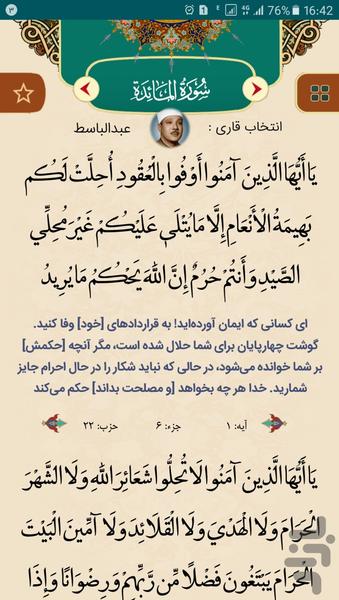 76% 16:42
سُورَةُ المَائِدَة
انتخاب قاری : عبدالباسط
يَا أَيُّهَا الَّذِينَ آمَنُوا أَوْفُوا بِالْعُقُودِ أُحِلَّتْ لَكُم
بَهِيمَةُ الْأَنْعَامِ إِلَّا مَا يُتْلَىٰ عَلَيْكُمْ غَيْرَ مُحِلِّي
الصَّيْدِ وَأَنتُمْ حُرُمٌ إِنَّ اللَّهَ يَحْكُمُ مَا يُرِيدُ
ای کسانی که ایمان آورده‌اید! به قراردادهای [خود] وفا کنید.
گوشت چهارپایان برای شما حلال شده است، مگر آنچه [حکمش]
بر شما خوانده می‌شود، در حالی که نباید شکار را در حال احرام جایز
شمارید. خدا هر چه بخواهد [و مصلحت بداند] حکم می‌کند
آیه: ۱ جزء: ۶ حزب: ۲۲
يَا أَيُّهَا الَّذِينَ آمَنُوا لَا تُحِلُّوا شَعَائِرَ اللَّهِ وَلَا الشَّهْرَ
الْحَرَامَ وَلَا الْهَدْيَ وَلَا الْقَلَائِدَ وَلَا آمِّينَ الْبَيْتَ
الْحَرَامَ يَبْتَغُونَ فَضْلًا مِّن رَّبِّهِمْ وَرِضْوَانًا وَإِذَا